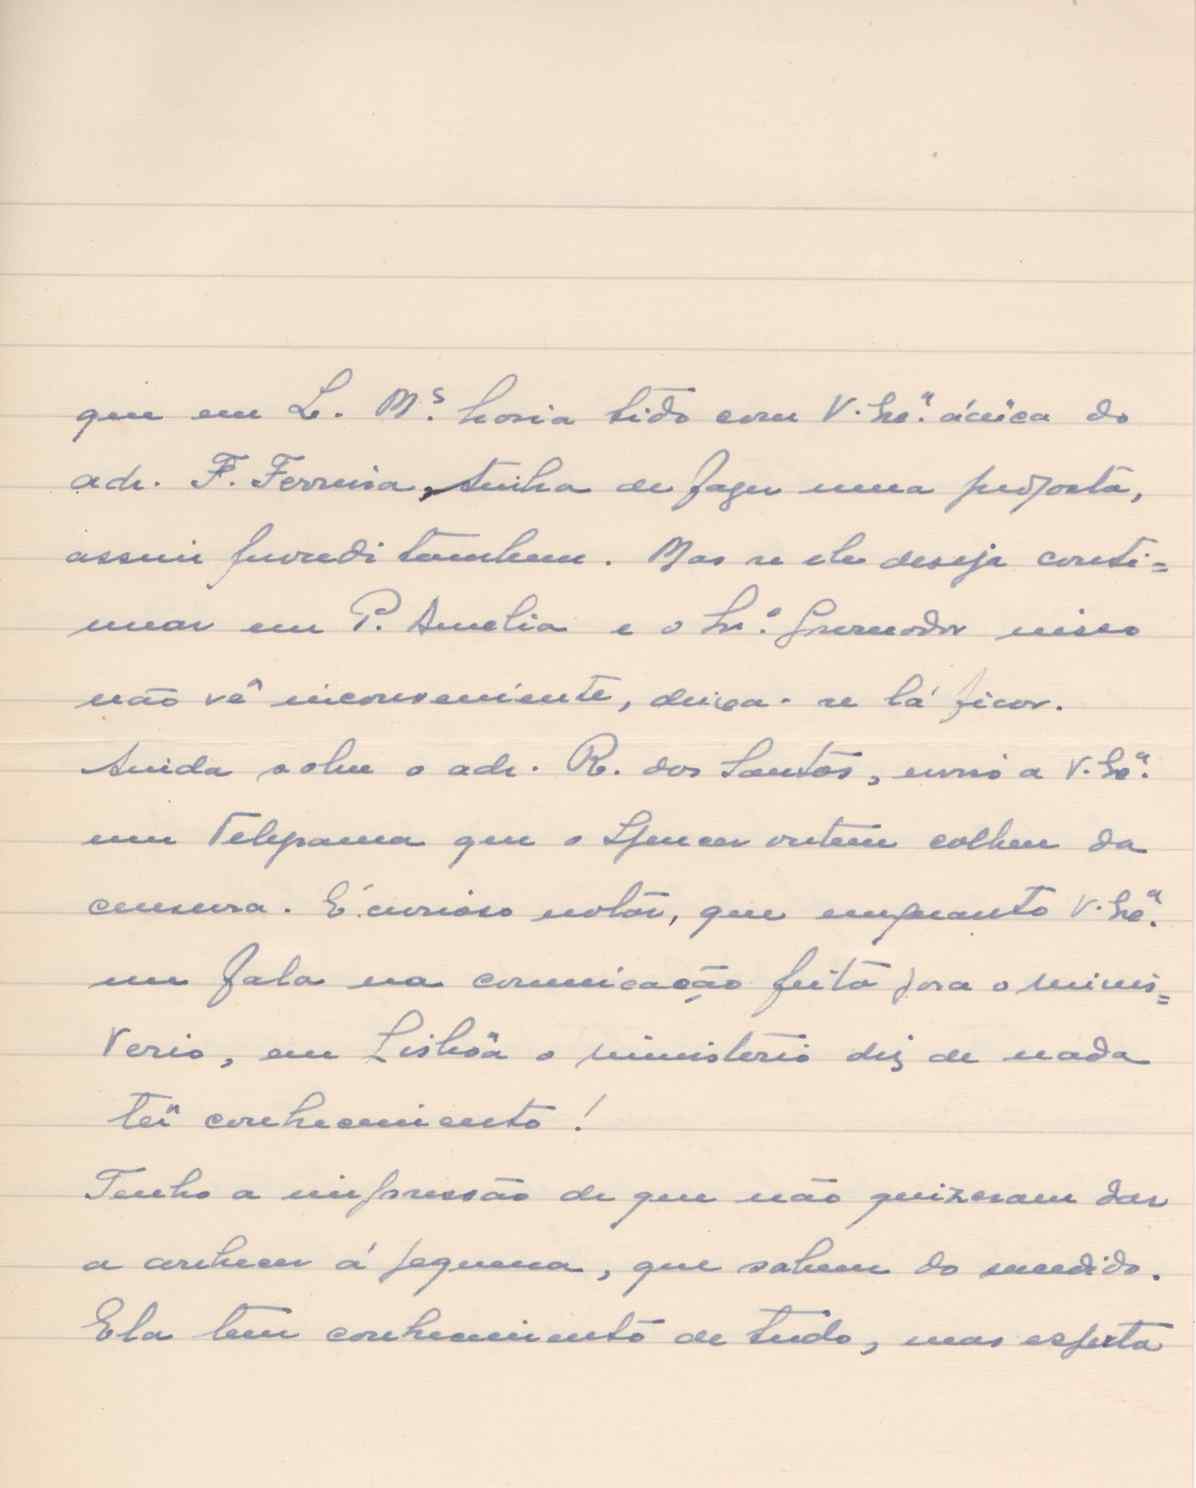 que em L. M.s havia tido com V. Ex.ª ácêrca do
adr. F. Ferreira, tinha de fazer uma proposta,
assim procedi tambem. Mas se ele deseja conti=
nuar em P. Amelia e o Sr. Governador nisso
não vê inconveniente, deixa-se lá ficar.
Ainda sobre o adr. R. dos Santos, envio a V. Ex.ª
um telegrama que o Spencer ontem colheu da
censura. É curioso notar, que emquanto V. Ex.ª
me fala na comunicação feita para o minis=
terio, em Lisbôa o ministerio diz de nada
ter conhecimento!
Tenho a impressão de que não quizeram dar
a conhecer á pequena, que sabem do sucedido.
Ela tem conhecimento de tudo, mas esperta